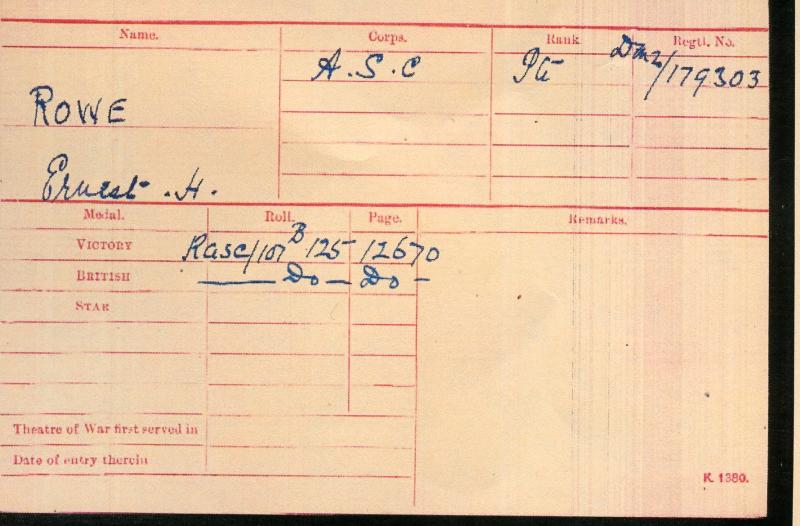 Name. Corps. Rank Regtl. No.
A.S.C Pte DM2/179303
ROWE
Ernest .H.
Medal. Roll. Page. Remarks.
VICTORY RASC/101 B 125 12670
BRITISH — Do — Do —
STAR
Theatre of War first served in
Date of entry therein
K. 1380.